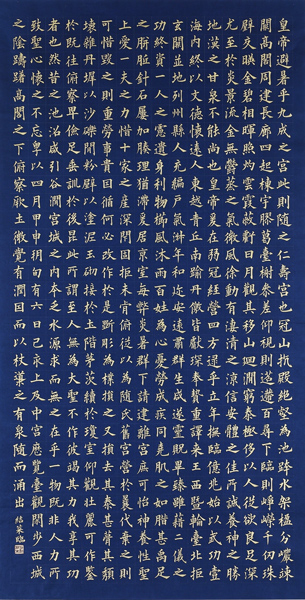 皇帝避暑乎九成之宮此則隨之仁壽宮也冠山抗殿絕壑為池跨水架楹分巖竦
闕高閣周建長廊四起棟宇膠葛臺榭參差仰視則迢遰百尋下臨則崢嶸千仞珠
壁交暎金碧相暉照灼雲霞蔽虧日月觀其移山迴澗窮泰極侈以人從欲良足深
尤至於炎景流金無鬱蒸之氣微風徐動有淒清之涼信安體之佳所誠養神之勝
地漢之甘泉不能尚也皇帝爰在弱冠經營四方逮乎立年撫臨億兆始以武功壹
海內終以文德懷遠人東越青丘南踰丹儌皆獻琛奉贄重譯來王西暨輪臺北拒
玄闕並地列州縣人充編戶氣淑年和邇安遠肅群生咸遂靈貺畢臻雖藉二儀之
功終資一人之慮遺身利物櫛風沐雨百姓為心憂勞成疾同堯肌之如腊甚禹足
之胼胝針石屢加腠理猶滯爰居京室每弊炎暑群下請建離宮庶可怡神養性聖
上愛一夫之力惜十家之產深閉固拒未肯俯從以為隨氏舊宮營於曩代棄之則
可惜毀之則重勞事貴因循何必改作於是斲彫為樸損之又損去其泰甚葺其頹
壞雜丹墀以沙礫間粉壁以塗泥玉砌接於土階茅茨續於瓊室仰觀壯麗可作鑒
於既往俯察卑儉足垂訓於後昆此所謂至人無為大聖不作彼竭其力我享其功
者也然昔之池沼咸引谷澗宮城之內本乏水源求而無之在乎一物既非人力所
致聖心懷之不忘粵以四月甲申朔旬有六日己亥上及中宮歷覽臺觀閑步西城
之陰躊躇高閣之下俯察厥土微覺有潤因而以杖導之有泉隨而涌出